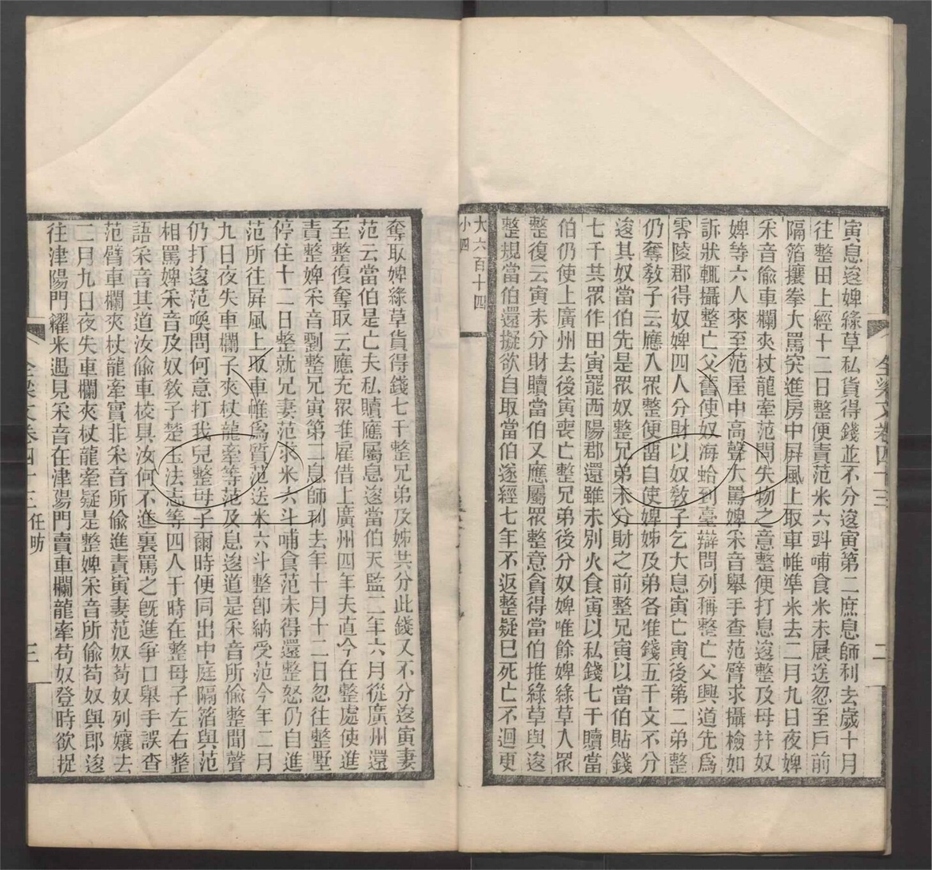 寅息逡婢綠草私貨得錢並不分逡寅第二庶息師利去歲十月
往整田上經十二日整便責范米六㪷哺食米未展送忽至戶前
隔箔攘拳大罵突進房中屏風上取車帷準米去二月九日夜婢
采音偷車欄夾杖龍牽范問失物之意整便打息逡整及母并奴
婢等六人來至范屋中高聲大罵婢采音舉手查范臂求攝檢如
訴狀輒攝整亡父舊使奴海蛤到臺辯問列稱整亡父興道先爲
零陵郡得奴婢四人分財以奴敎子乞大息寅亡寅後第二弟整
仍奪敎子云應入眾整便畱自使婢姊及弟各准錢五千文不分
逡其奴當伯先是眾奴整兄弟未分財之前整兄寅以當伯貼錢
七千共眾作田寅罷西陽郡還雖未別火食寅以私錢七千贖當
伯仍使上廣州去後寅喪亡整兄弟後分奴婢唯餘婢綠草入眾
整復云寅未分財贖當伯又應屬眾整意貪得當伯推綠草與逡
整規當伯還擬欲自取當伯遂經七年不返整疑巳死亡不迴更
大六百十四
小四
全梁文卷四十三
二
奪取婢綠草貨得錢七千整兄弟及姊共分此錢又不分逡寅妻
范云當伯是亡夫私贖應屬息逡當伯天監二年六月從廣州還
至整復奪取云應充眾准雇借上廣州四年夫直今在整處使進
責整婢采音劉整兄寅第二息師利去年十月十二日忽往整墅
停住十二日整就兄妻范求米六斗哺食范未得還整怒仍自進
范所往屏風上取車帷爲質范送米六斗整卽納受范今年二月
九日夜失車欄子夾杖龍牽等范及息逡道是采音所偷整聞聲
仍打逡范喚問何意打我兒整母子爾時便同出中庭隔箔與范
相罵婢采音及奴敎子楚玉法志等四人于時在整母子左右整
語采音其道汝偷車校具汝何不進裏罵之旣進爭口舉手誤查
范臂車欄夾杖龍牽實非采音所偷進責寅妻范奴苟奴列孃去
二月九日夜失車欄夾杖龍牽疑是整婢采音所偷苟奴與郎逡
往津陽門糴米遇見采音在津陽門賣車欄龍牽苟奴登時欲捉
全梁文卷四十三 任昉
三